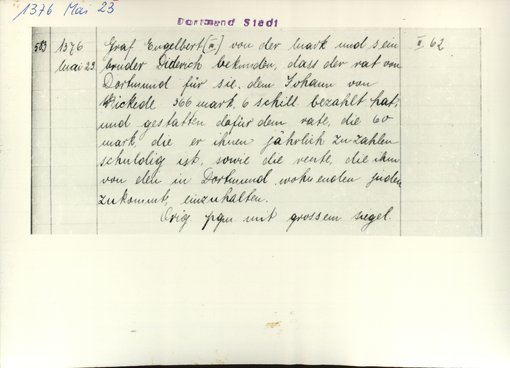 1376 Mai 23
Dortmund Stadt
583 1376 Mai 23 Graf Engelbert [III] von der Mark und sein II. 62
bruder Diderich bekunden, dass der rat von
Dortmund für sie dem Johann von
Wickede 366 mark, 6 schill bezahlt hat,
und gestatten dafür dem rate, die 60
mark, die er ihnen jährlich zu zahlen
schuldig ist, sowie die rente, die ihm
von den in Dortmund wohnenden juden
zukommt, einzuhalten.
Orig pgm mit grossem siegel.